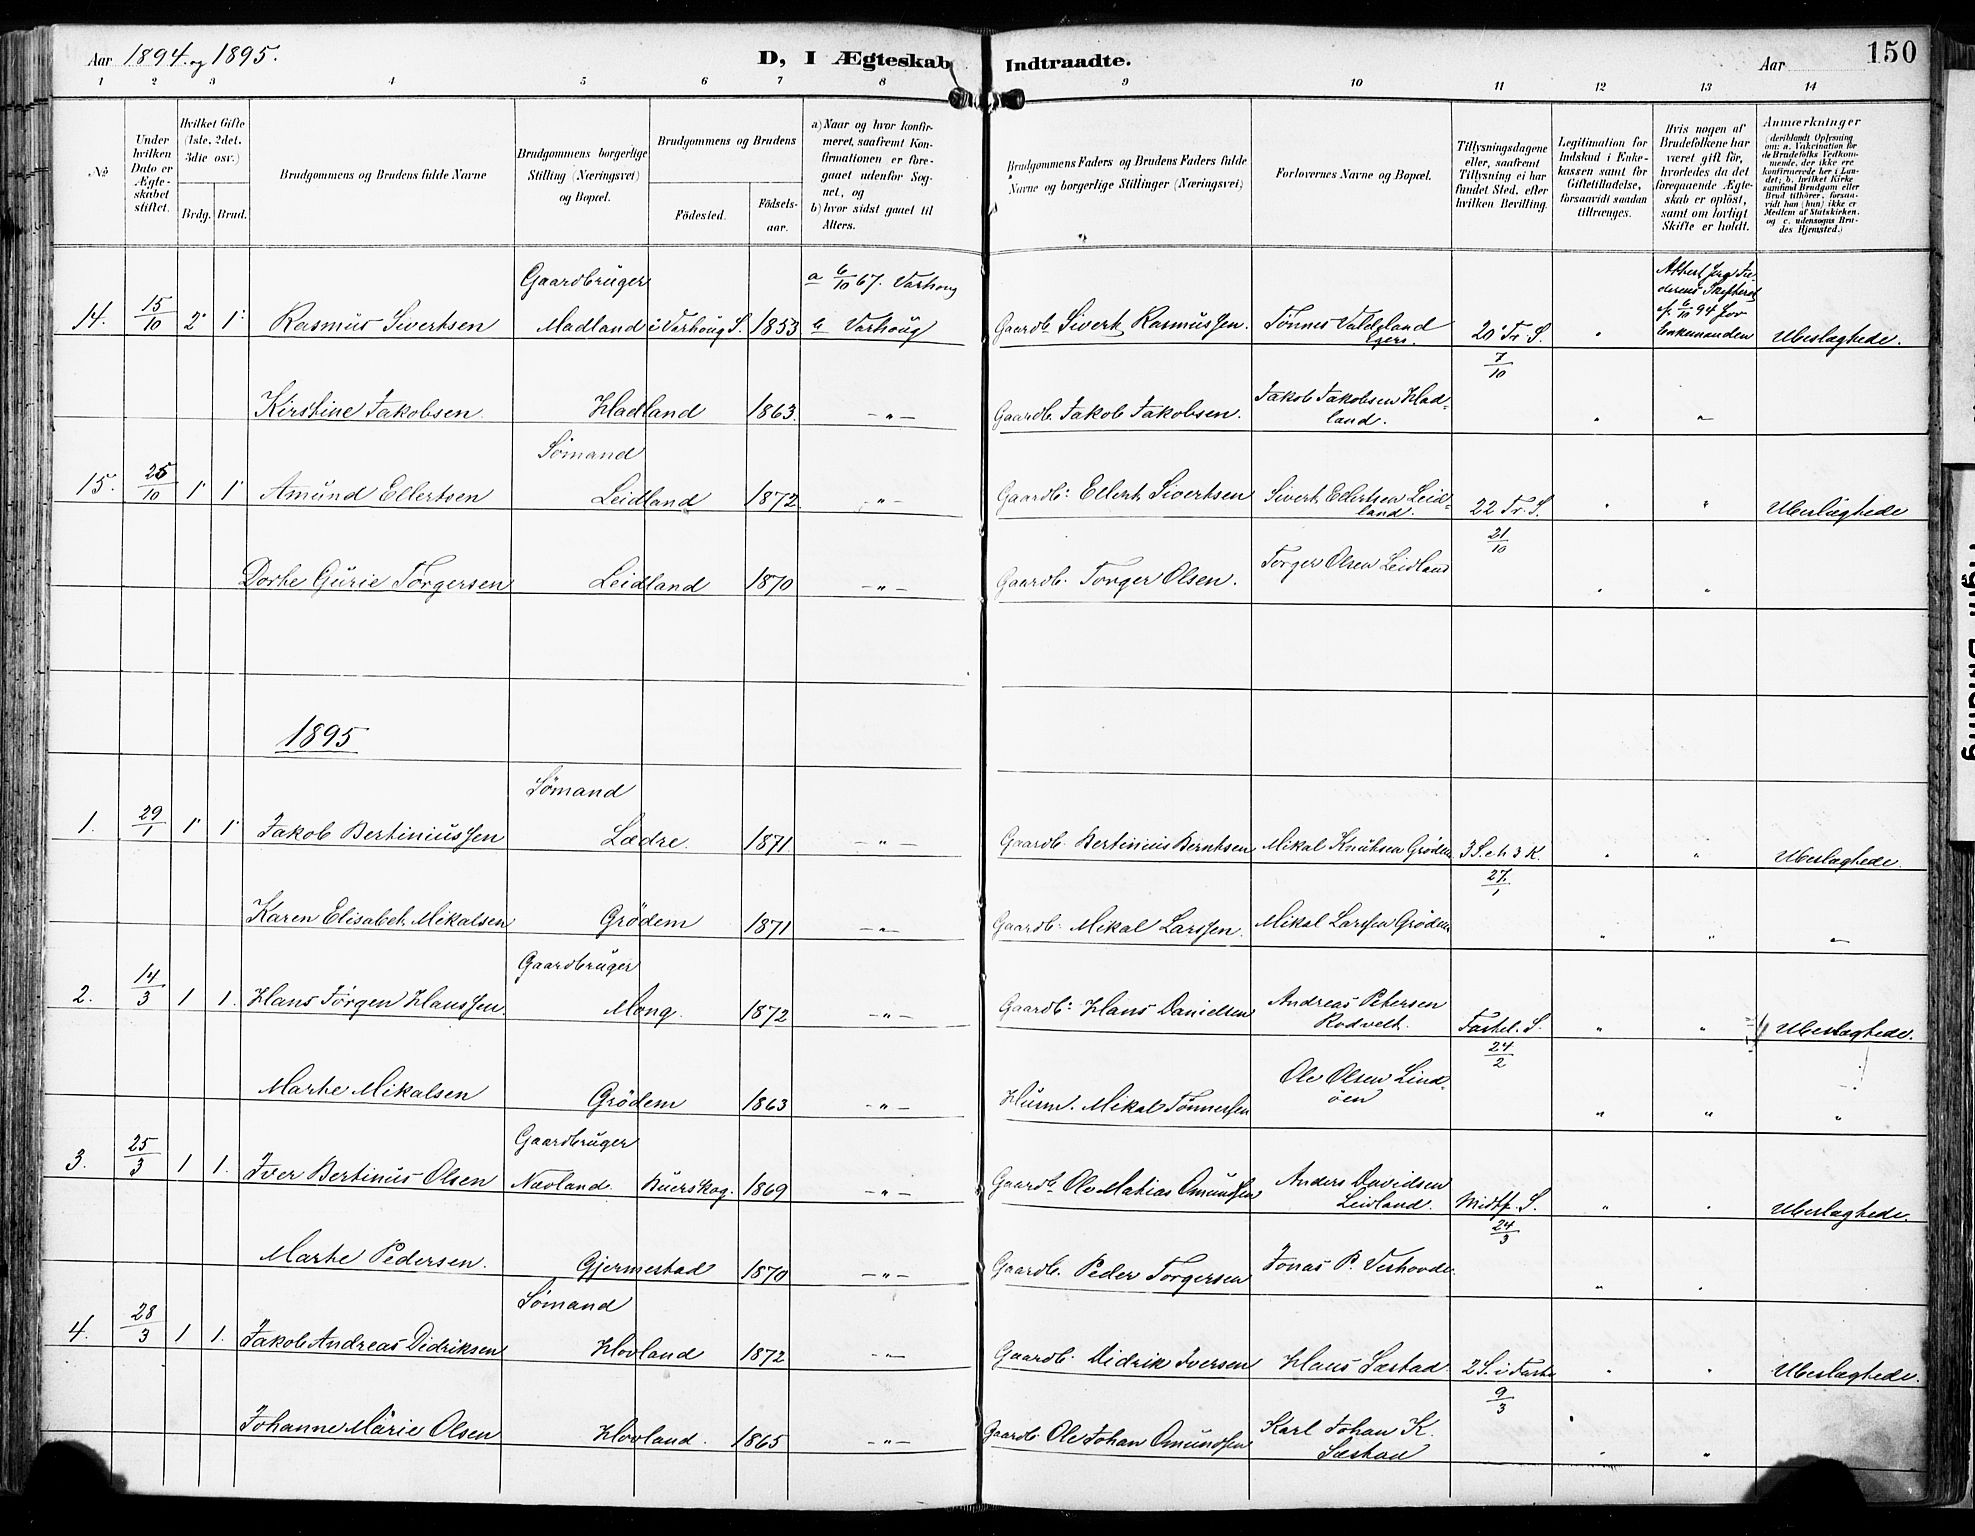 Aar 1894 og 1895.
D, I Ægteskab Indtraadte.
Aar
150
1 2 3 4 5 6 7 8 9 10 11 12 13 14
No
Under hvilken Dato er Ægteskabet stiftet.
Hvilket Gifte (1ste, 2det, 3die osv.)
Brdg. Brud.
Brudgommens og Brudens fulde Navne
Brudgommens borgerlige Stilling (Næringsvei) og Bopæl.
Brudgommens og Brudens
Fødested.
Fødselsaar.
a) Naar og hvor konfirmeret, saafremt Konfirmationen er foregaaet udenfor Sognet, og
b) hvor sidst gaaet til Alters.
Brudgommens Faders og Brudens Faders fulde Navne og borgerlige Stillinger (Næringsvei)
Forlovernes Navne og Bopæl.
Tillysningsdagene eller, saafremt Tillysning ei har fundet Sted, efter hvilken Bevilling.
Legitimation for Indskud i Enkekassen samt for Giftetilladelse, forsaavidt saadan tiltrænges.
Hvis nogen af Brudefolkene har været gift før, hvorledes da det foregaaende Ægteskab er opløst, samt om lovligt Skifte er holdt.
Anmærkninger
(deriblandt Oplysning om: a. Vakcination for de Brudefolks Vedkommende, der ikke ere konfirmerede her i Landet; b. hvilket Kirkesamfund Brudgom eller Brud tilhører, forsaavidt han (hun) ikke er Medlem af Statskirken, og c. udensogns Brudes Hjemsted.)
14. 15/10 2' 1' Rasmus Sivertsen Gaardbruger Madland i Varhoug S. 1853 a 6/10 67. Varhoug b Varhoug Gaardb. Sivert Rasmussen. Tønnes Egers. 20' Tr. S. 7/10 " 6/10 94 for Enkemanden Ubeslægtede.
Kirstine Jakobsen. Hadland 1863. -"- Gaardb. Jakob Jakobsen. Jakob Jakobsen Hadland. " "
15. 25/10 1' 1' Amund Ellertsen Sømand Leidland 1872 -"- Gaardb: Ellert Sivertsen Sivert Ellertsen Leidland. 22 Tr. S. 21/10 " " Ubeslægtede
Dorte Gurie Torgersen Leidland 1870 -"- Gaardb. Torger Olsen. Torger Olsen Leidland " "
1895
1. 29/1 1' 1' Jakob Bertiniussen Sømand Lædre. 1871. -"- Gaardb. Bertinius Berntsen Mikal Knutsen Grødem 3 S. e. h. 3 K. 27/1 " " Ubeslægtede.
Karen Elisabet Mikalsen Grødem 1871 -"- Gaardb. Mikal Larssen. Mikal Larssen Grødem " " "
2. 14/3 1 1. Hans Jørgen Hanssen. Gaardbruger Mong. 1872 -"- Gaardb: Hans Danielsen Andreas Petersen Rodvelt. Fastel. S. 24/2 " " Ubeslægtede.
Marte Mikalsen Grødem 1863 -"- Husm. Mikal Tønnessen Ole Olsen Lindøen " " "
3. 25/3 1 1. Iver Bertinus Olsen Gaardbruger Nevland. Buerskog. 1869 -"- Gaardb. Ole Matias Omundsen Anders Davidsen Leidland. Midtf. S. 24/3 " " Ubeslægtede.
Marte Pedersen. Gjermestad 1870 -"- Gaardb. Peder Torgersen Jonas P. Veshovde " "
4. 28/3 1 1. Jakob Andreas Didriksen Sømand Hovland 1872 -"- Gaardb. Didrik Iversen Hans Sæstad 2 S. i Faste 9/3 " " Ubeslægtede.
Johanne Marie Olsen Hovland. 1865 -"- Gaardb. Ole Johan Omundsen Karl Johan K. Sæstad " "